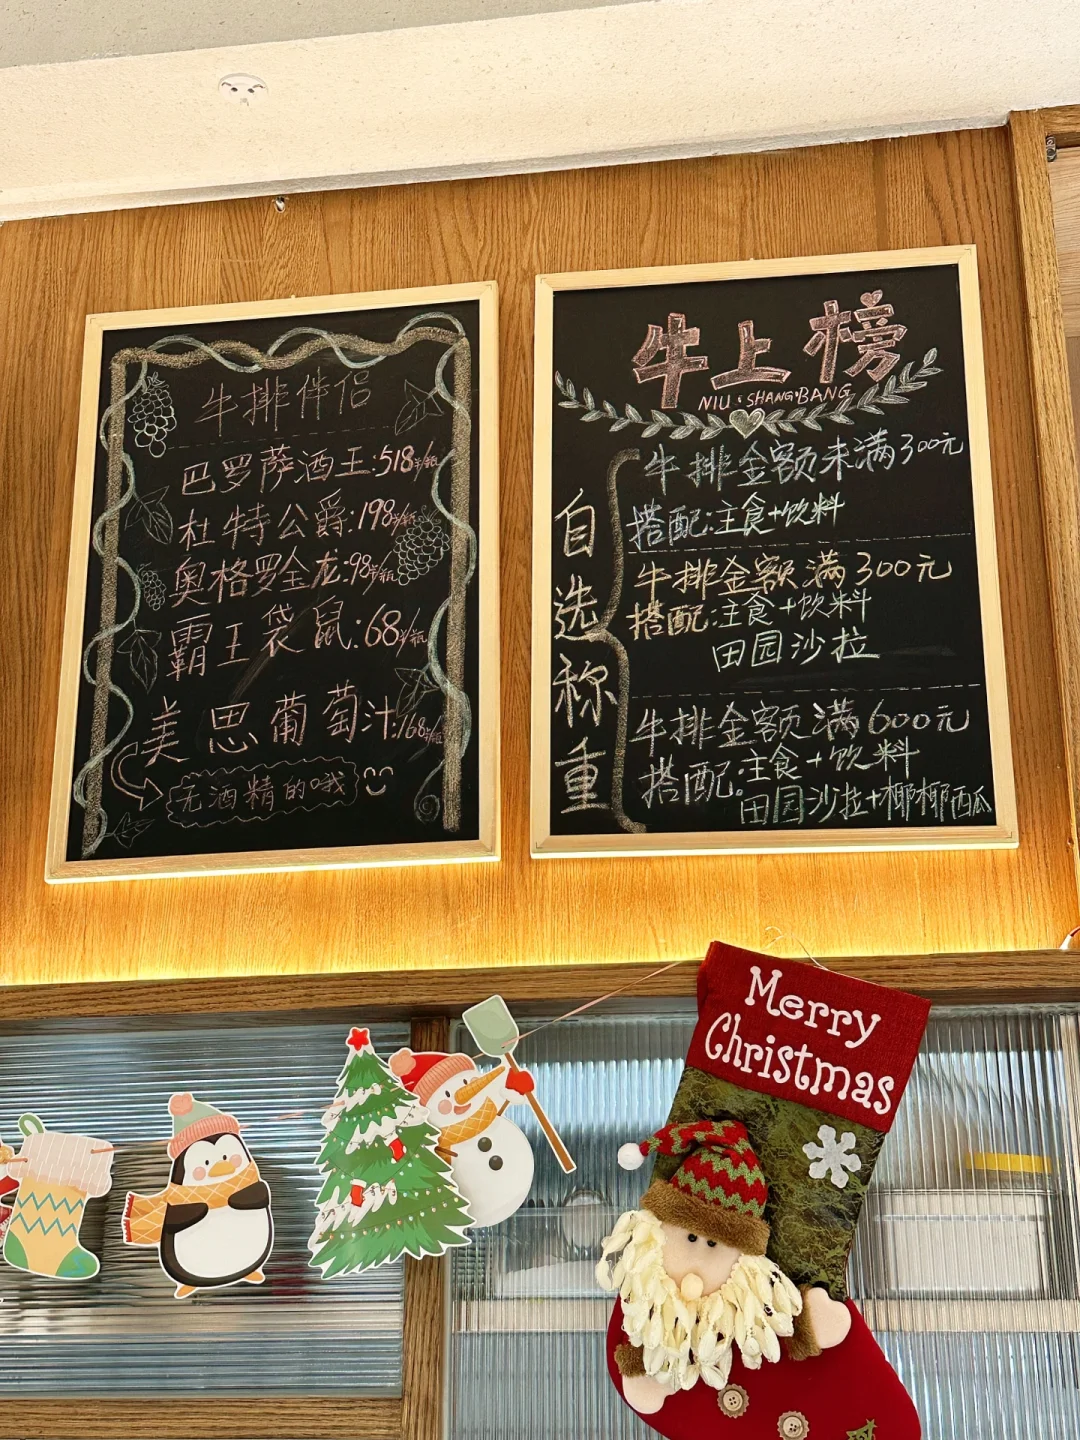 牛排伴侣
巴罗萨酒王:518元/瓶
杜特公爵:198元/瓶
奥格罗金龙:98元/瓶
霸王袋鼠:68元/瓶
美思葡萄汁:168元/瓶
无酒精的哦
牛上榜
NIU·SHANG·BANG
自选称重
牛排金额未满300元
搭配:主食+饮料
牛排金额满300元
搭配:主食+饮料
田园沙拉
牛排金额满600元
搭配:主食+饮料
田园沙拉+椰椰西瓜
Merry
Christmas